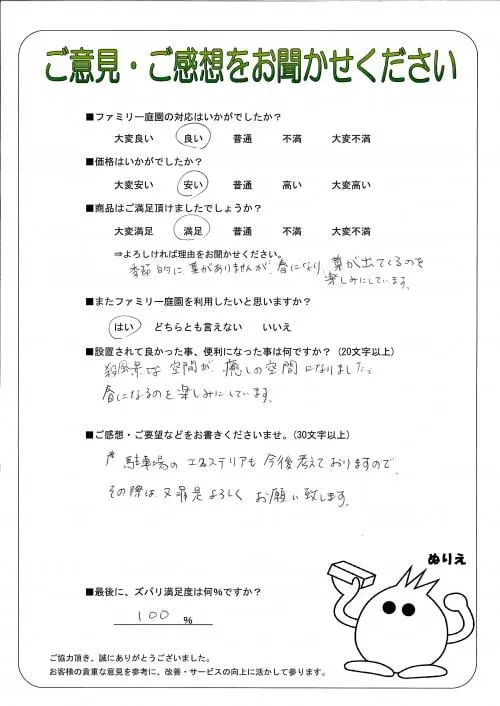 ご意見・ご感想をお聞かせください
■ファミリー庭園の対応はいかがでしたか？
大変良い 良い 普通 不満 大変不満
■価格はいかがでしたか？
大変安い 安い 普通 高い 大変高い
■商品はご満足頂けましたでしょうか？
大変満足 満足 普通 不満 大変不満
⇒よろしければ理由をお聞かせください。
季節的に、葉がありませんが、春になり、葉が出てくるのを
楽しみにしています。
■またファミリー庭園を利用したいと思いますか？
はい どちらとも言えない いいえ
■設置されて良かった事、便利になった事は何ですか？（20文字以上）
殺風景な空間が、癒しの空間になりました。
春になるのを楽しみにしています。
■ご感想・ご要望などをお書きくださいませ。（30文字以上）
駐車場のエクステリアも今後考えておりますので、
その際は又是非よろしくお願い致します。
ぬりえ
■最後に、ズバリ満足度は何％ですか？
100 ％
ご協力頂き、誠にありがとうございました。
お客様の貴重な意見を参考に、改善・サービスの向上に活かして参ります。